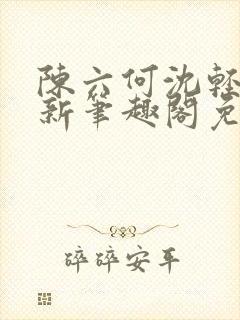 陳六何沈輕
新筆趣閣免
碎碎安平